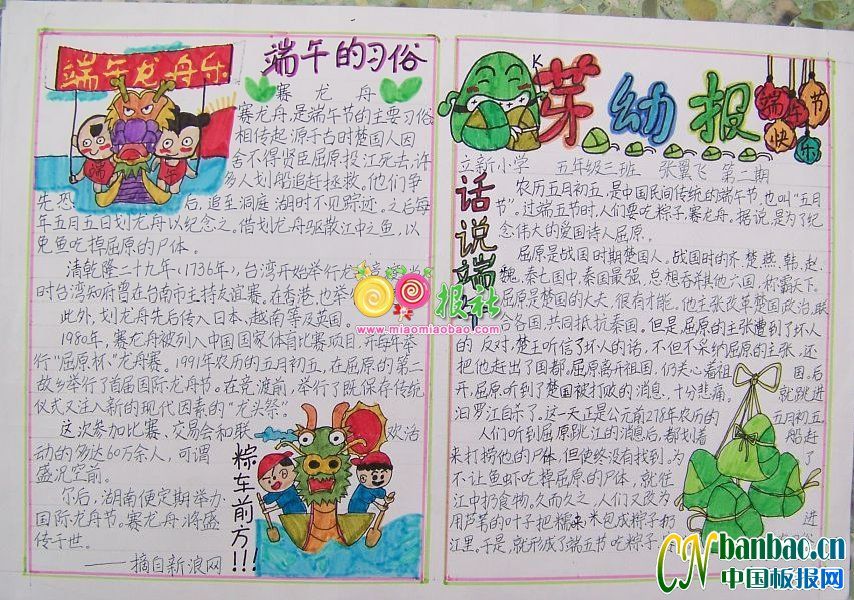 端午龙舟乐
端午的习俗
赛龙舟
赛龙舟,是端午节的主要习俗
相传起源于古时楚国人因
舍不得贤臣屈原投江死去,许
多人划船追赶拯救。他们争
先恐后,追至洞庭湖时不见踪迹。之后每
年五月五日划龙舟以纪念之。借划龙舟驱散江中之鱼,以
免鱼吃掉屈原的尸体。
清乾隆二十九年(1736年),台湾开始举行龙
时台湾知府曾在台南市主持友谊赛。在香港,也举
此外,划龙舟先后传入日本、越南等及英国。
1980年,赛龙舟被列入中国国家体育比赛项目,并每年举
行“屈原杯”龙舟赛。1991年农历的五月初五,在屈原的第二
故乡举行了首届国际龙舟节。在竞渡前,举行了既保存传统
仪式又注入新的现代因素的“龙头祭。
这次参加比赛、交易会和联欢活
动的多达60万余人,可谓
盛况空前。
尔后,湖南便定期举办
国际龙舟节。赛龙舟将盛
传于世。
——摘自新浪网
粽车前方!!!
端
午
芽幼报
端午节
快乐
立新小学 五年级三班 张翼飞 第二期
话说端午
农历五月初五,是中国民间传统的端午节,也叫“五月
节”。过端五节时,人们要吃粽子,赛龙舟。据说,是为了纪
念伟大的爱国诗人屈原。
屈原是战国时期楚国人。战国时的齐、楚、燕、韩、赵、
魏、秦七国中,秦国最强,总想吞并其他六国,称霸天下。
屈原是楚国的大夫,很有才能。他主张改革楚国政治,联
合各国,共同抵抗秦国。但是,屈原的主张遭到了坏人
的反对,楚王听信了坏人的话,不但不采纳屈原的主张,还
把他赶出了国都。屈原离开祖国,仍关心着祖国。后
来,屈原听到了楚国被打败的消息,十分悲痛。就跳进
汨罗江自杀了。这一天正是公元前278年农历的五月初五。
人们听到屈原跳江的消息后,都划着船赶了
来打捞他的尸体,但使终没有找到。为
不让鱼虾吃掉屈原的尸体,就往
江中扔食物。久而久之,人们又改为
用芦苇的叶子把糯米包成粽子扔进
江里。于是,就形成了端五节吃粽子、
报社
www.miaomiaobao.com
CNbanbao.cn
中国板报网